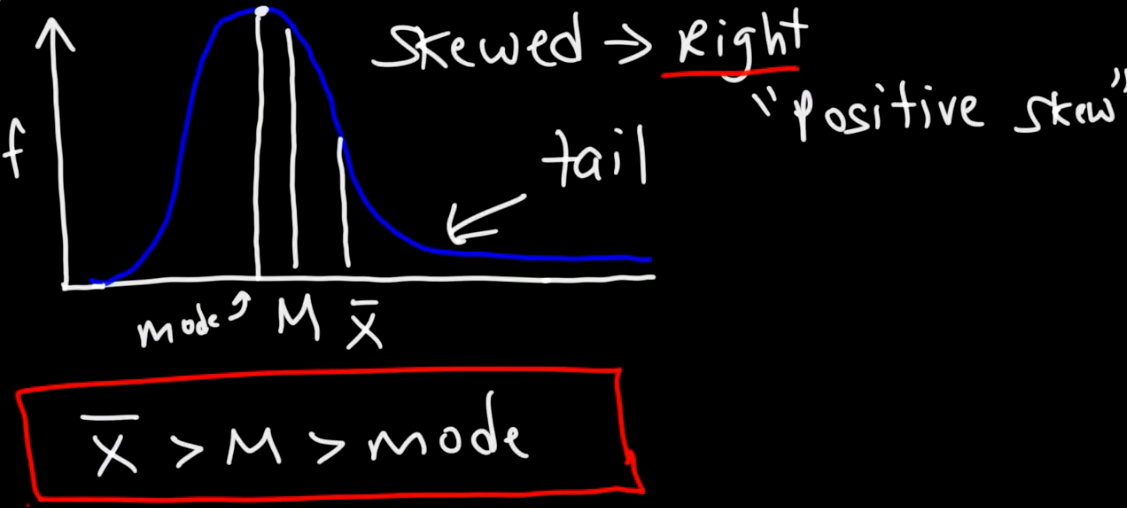 Skewed → Right
"Positive skew"
f
tail
mode M X̄
X̄ > M > mode